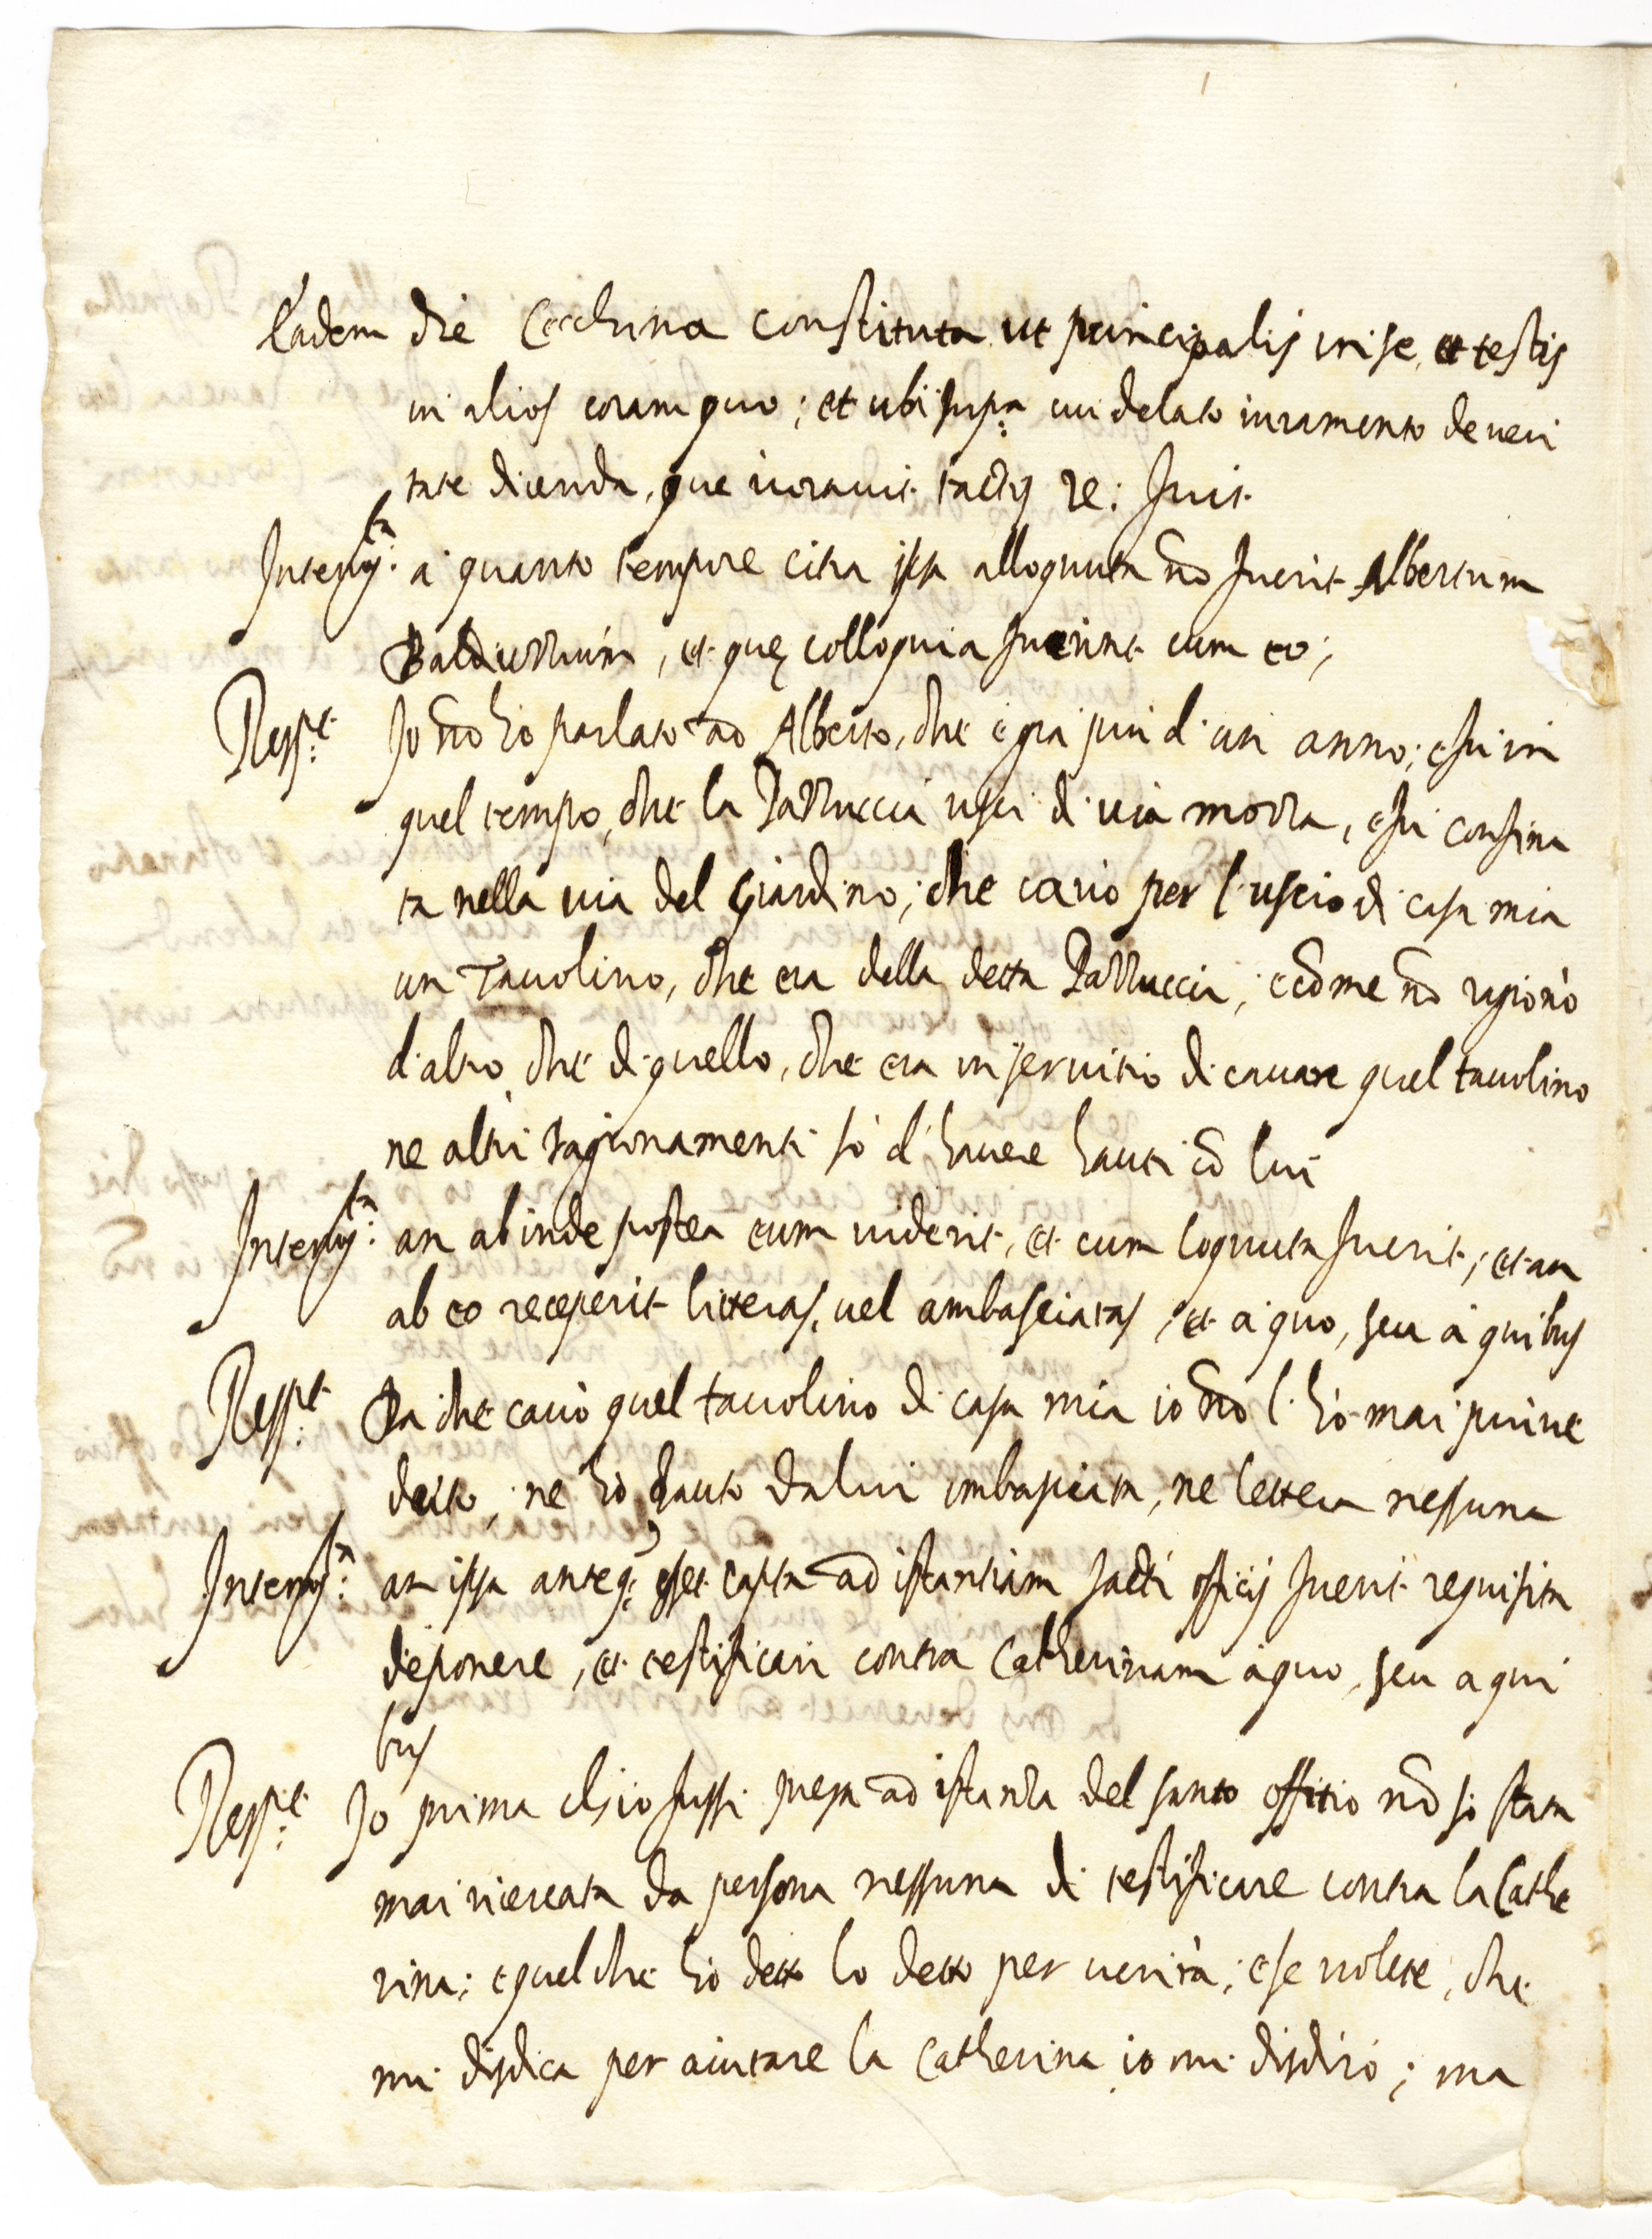 Eadem die Cecchina constituta ut principalis in se, et testis
in alios coram quo; et ubi supra cui delato iuramento de veri
tate dicenda, que iuravit tactis re: fuit
Interrog.ta à quanto tempore citra ipsa alloquuta nō fuerit Albertum
Balduzzium, et quę colloquia fuerint cum eo;
Resp.t Io nō hò parlato ad Alberto, che è gia piu d'un anno; e fu in
quel tempo, che la Pazzuccia uscì di via mozza, e fu confina
ta nella via del Giardino; che cavò per l'uscio di casa mia
un Tavolino, che era della detta Pazzuccia; e cō me nō ragionò
d'altro che di quello, che era in servitio di cavare quel tavolino
ne altri ragionamenti sò d'havere hauti cō lui
Interrog.ta an ab inde postea eum viderit, et cum loquuta fuerit; et an
ab eo receperit litteras, vel ambasciatas, et à quo, seu à quibus
Resp.t Da che cavò quel tavolino di casa mia io nō l'hò mai piu ve
duto, ne hò hauto da lui imbasciata, ne lettera nessuna
Interrog.ta an ipsa anteq; esset capta ad istantiam sacti officij fuerit requisita
deponere, et testificari contra Catherinam à quo, seu a qui
bus
Resp.t Io prima ch'io fussi presa ad istanza del santo offitio nō sò stata
mai ricercata da persona nessuna di testificare contra la Cathe
rina; e quel che hò detto lo detto per verità; e se volete, che
mi disdica per aiutare la Catherina io mi disdirò; ma